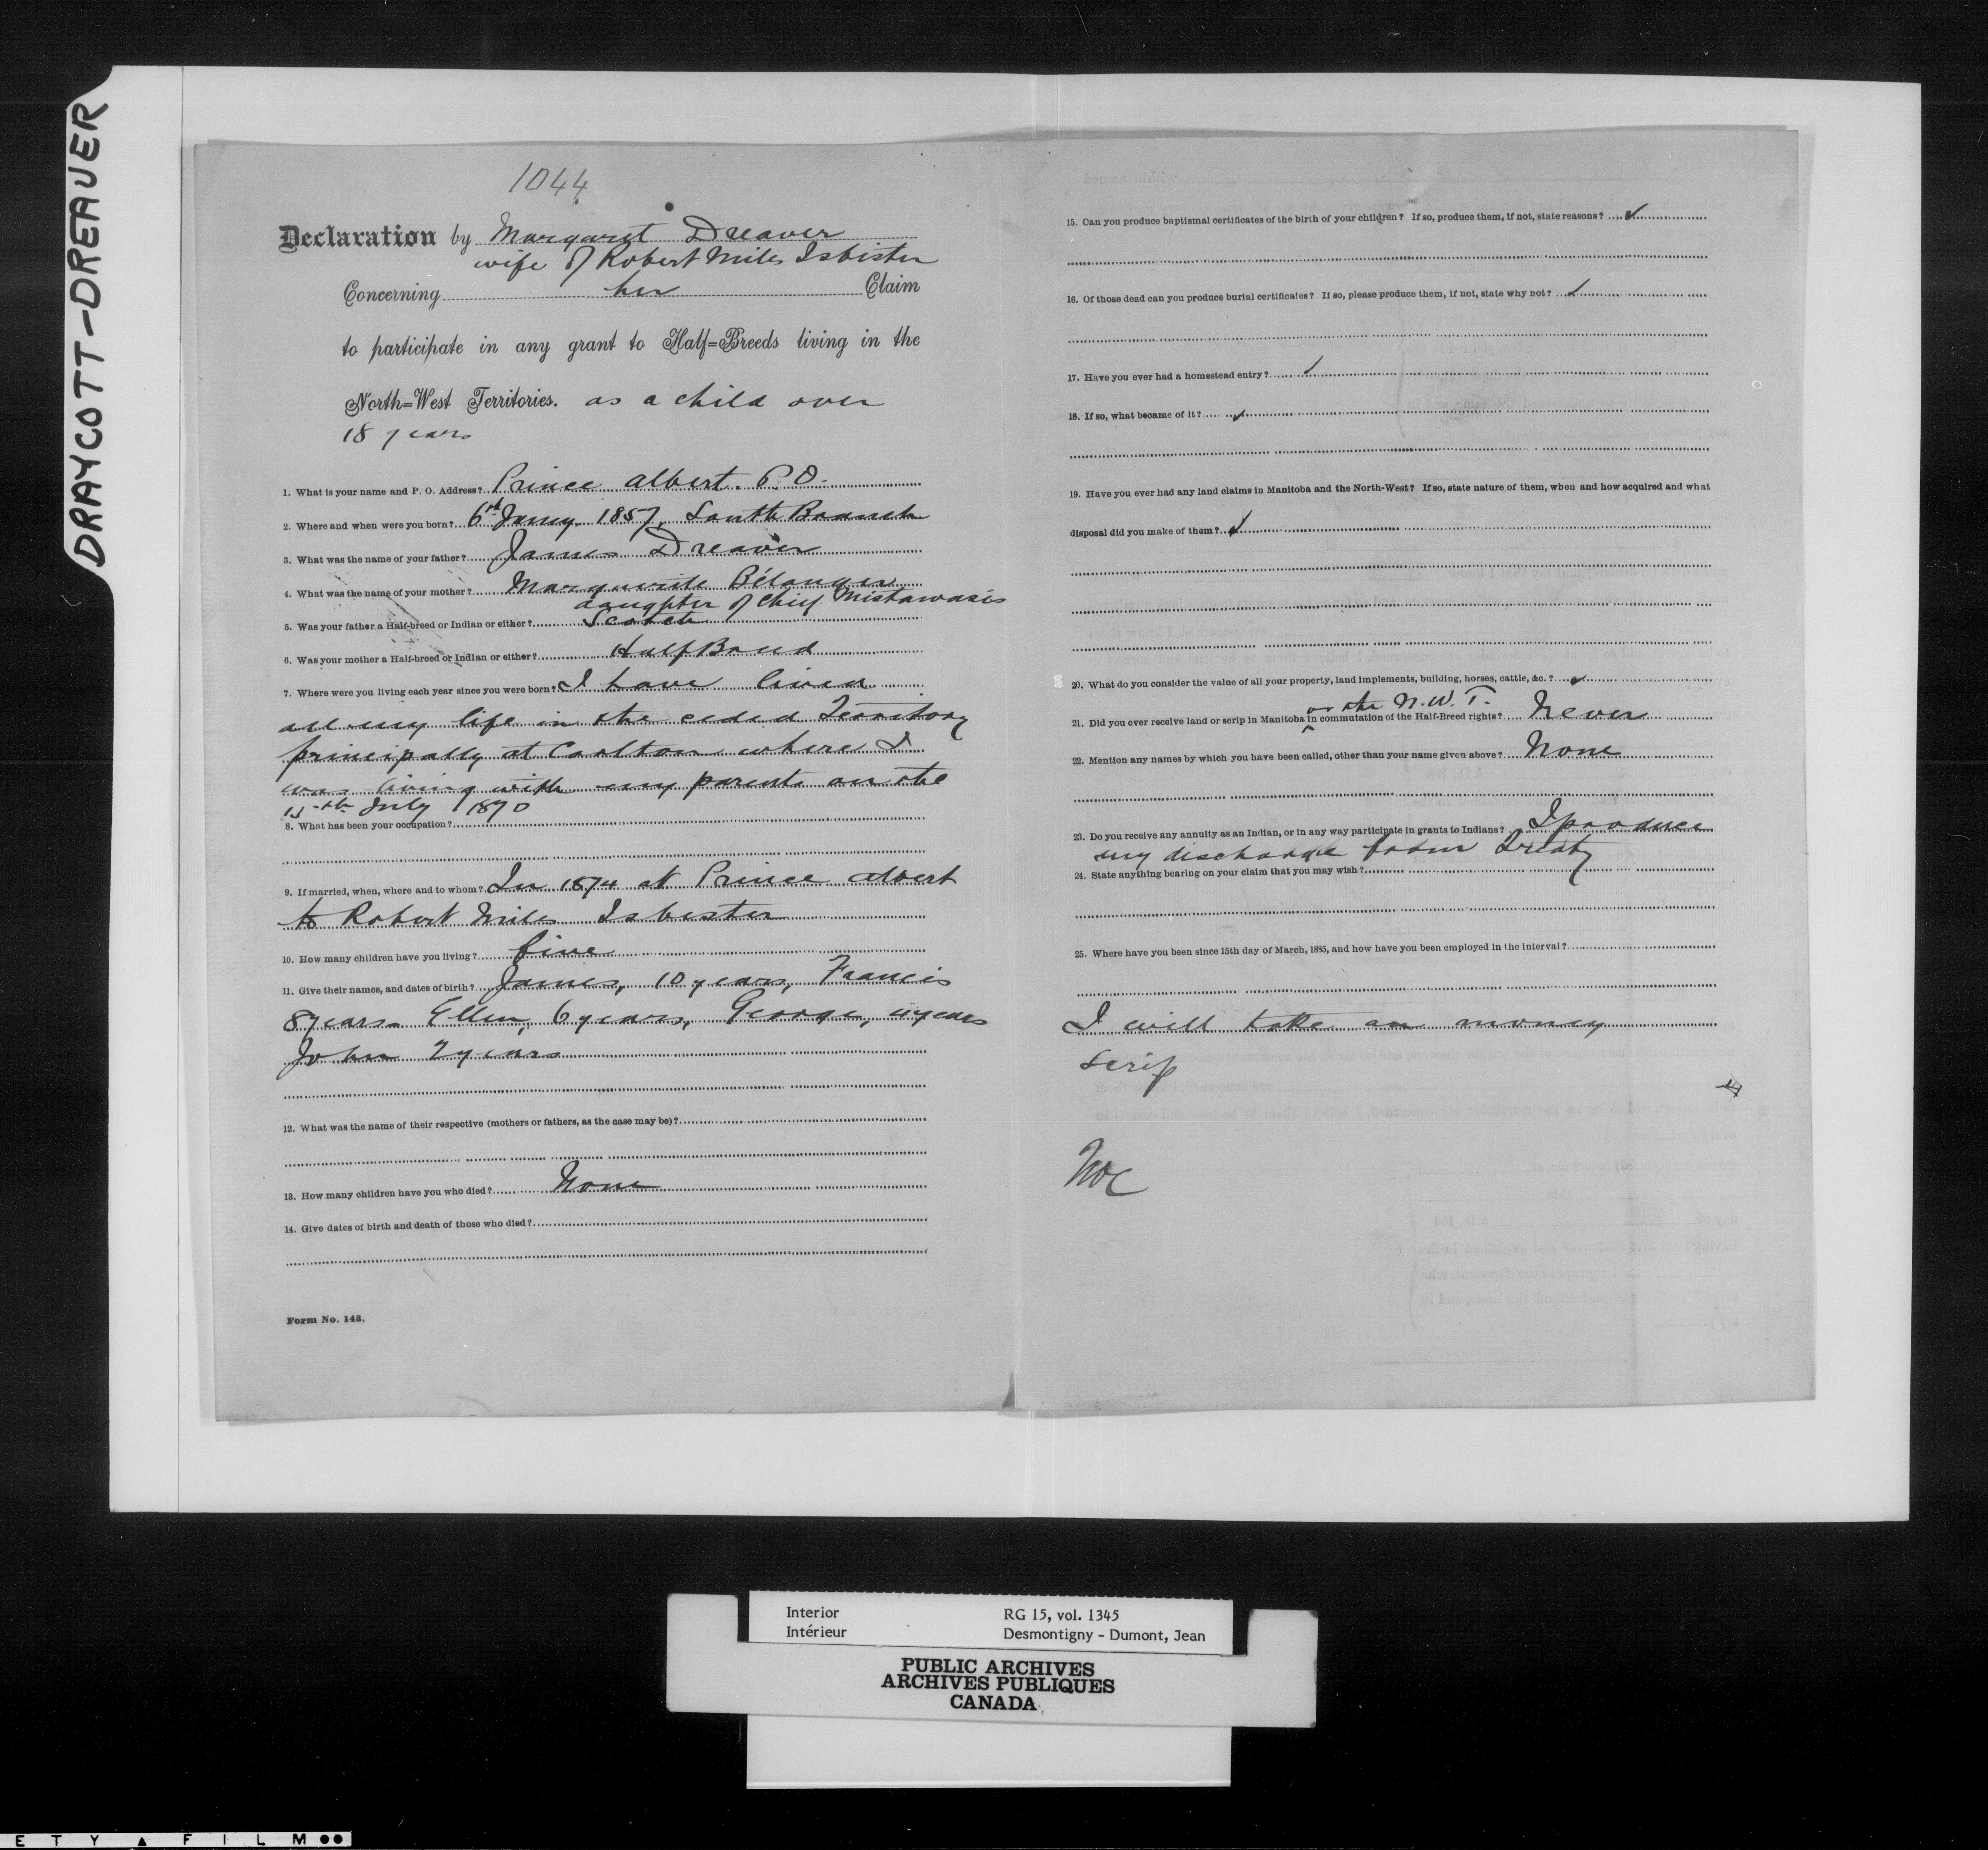 DRAYCOTT-DREAVER
1044
Declaration by Margaret Dreaver
wife of Robert Miles Isbister
Concerning her Claim
to participate in any grant to Half=Breeds living in the
North=West Territories. as a child over
18 years
1. What is your name and P. O. Address? Prince Albert. P.O.
2. Where and when were you born? 6th Jany. 1857, South Branch
3. What was the name of your father? James Dreaver
4. What was the name of your mother? Marguerite Bélanger
daughter of Chief Mistawasis
5. Was your father a Half-breed or Indian or either? Scotch
6. Was your mother a Half-breed or Indian or either? Half Breed
7. Where were you living each year since you were born? I have lived
all my life in the ceded Territory
principally at Carlton where I
was living with my parents on the
15th July 1870
8. What has been your occupation?
9. If married, when, where and to whom? In 1874 at Prince Albert
to Robert Miles Isbister
10. How many children have you living? five
11. Give their names, and dates of birth? James, 10 years, Francis
8 years Ellen, 6 years, George, 4 years
John 2 years
12. What was the name of their respective (mothers or fathers, as the case may be)?
13. How many children have you who died? None
14. Give dates of birth and death of those who died?
Form No. 143.
15. Can you produce baptismal certificates of the birth of your children? If so, produce them, if not, state reasons?
16. Of those dead can you produce burial certificates? If so, please produce them, if not, state why not?
17. Have you ever had a homestead entry?
18. If so, what became of it?
19. Have you ever had any land claims in Manitoba and the North-West? If so, state nature of them, when and how acquired and what
disposal did you make of them?
20. What do you consider the value of all your property, land implements, building, horses, cattle, &c.?
or the N.W.T.
21. Did you ever receive land or scrip in Manitoba in commutation of the Half-Breed rights? Never
22. Mention any names by which you have been called, other than your name given above? None
23. Do you receive any annuity as an Indian, or in any way participate in grants to Indians? I produce
my discharge from Treaty
24. State anything bearing on your claim that you may wish?
25. Where have you been since 15th day of March, 1885, and how have you been employed in the interval?
I will take an money
scrip
Interior RG 15, vol. 1345
Intérieur Desmontigny - Dumont, Jean
PUBLIC ARCHIVES
ARCHIVES PUBLIQUES
CANADA
ETY ▲ FILM ●●